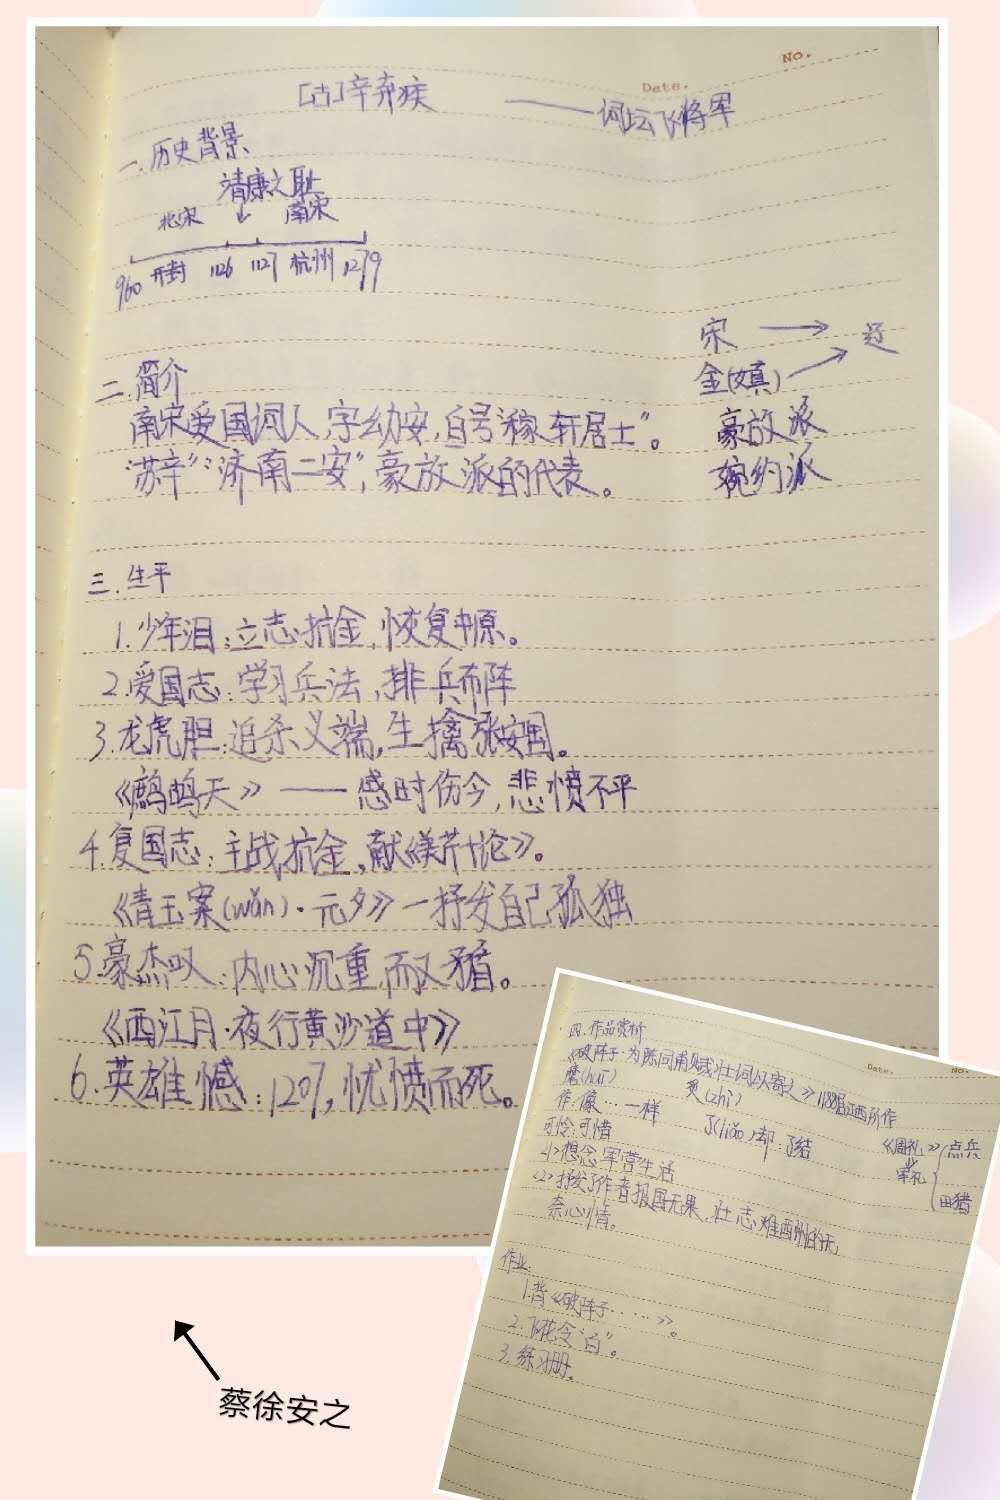 No.
Date.
[古]辛弃疾 ——词坛飞将军
一.历史背景
靖康之耻
北宋 ↙ 南宋
960 开封 1126 1127 杭州 1279
宋 → 辽
金(女真)
二.简介
南宋爱国词人,字幼安,自号"稼轩居士"。
豪放派
"苏辛""济南二安",豪放派的代表。
婉约派
三.生平
1.少年泪:立志抗金,恢复中原。
2.爱国志:学习兵法,排兵布阵
3.龙虎胆:追杀义端,生擒张安国。
《鹧鸪天》——感时伤今,悲愤不平
4.复国志:主战抗金,献《美芹十论》。
《青玉案(wǎn)·元夕》—抒发自己孤独
5.豪杰叹:内心沉重,而又矛盾。
《西江月·夜行黄沙道中》
6.英雄憾:1207,忧愤而死。
Date.
No.
四.作品赏析
《破阵子·为陈同甫赋壮词以寄之》1188届江西所作
麾(huī) 炙(zhì)
作:像…一样 了(liǎo)却:了结
可怜:可惜
《周礼》 点兵
军礼 田猎
<1>想念军营生活
<2>抒发了作者报国无果,壮志难酬的无
奈心情。
作业:
1.背《破阵子……》。
2.飞花令"白"。
3.练习册。
蔡徐安之